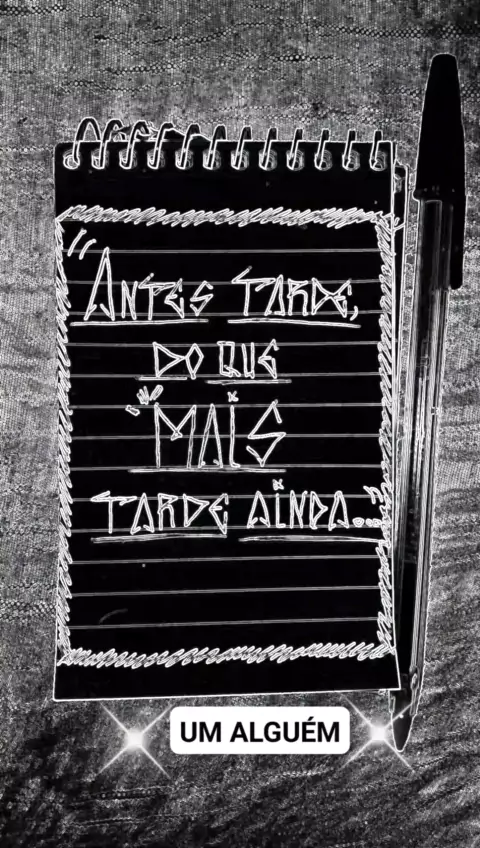 "Antes tarde,
do que
mais
tarde ainda..."
UM ALGUÉM